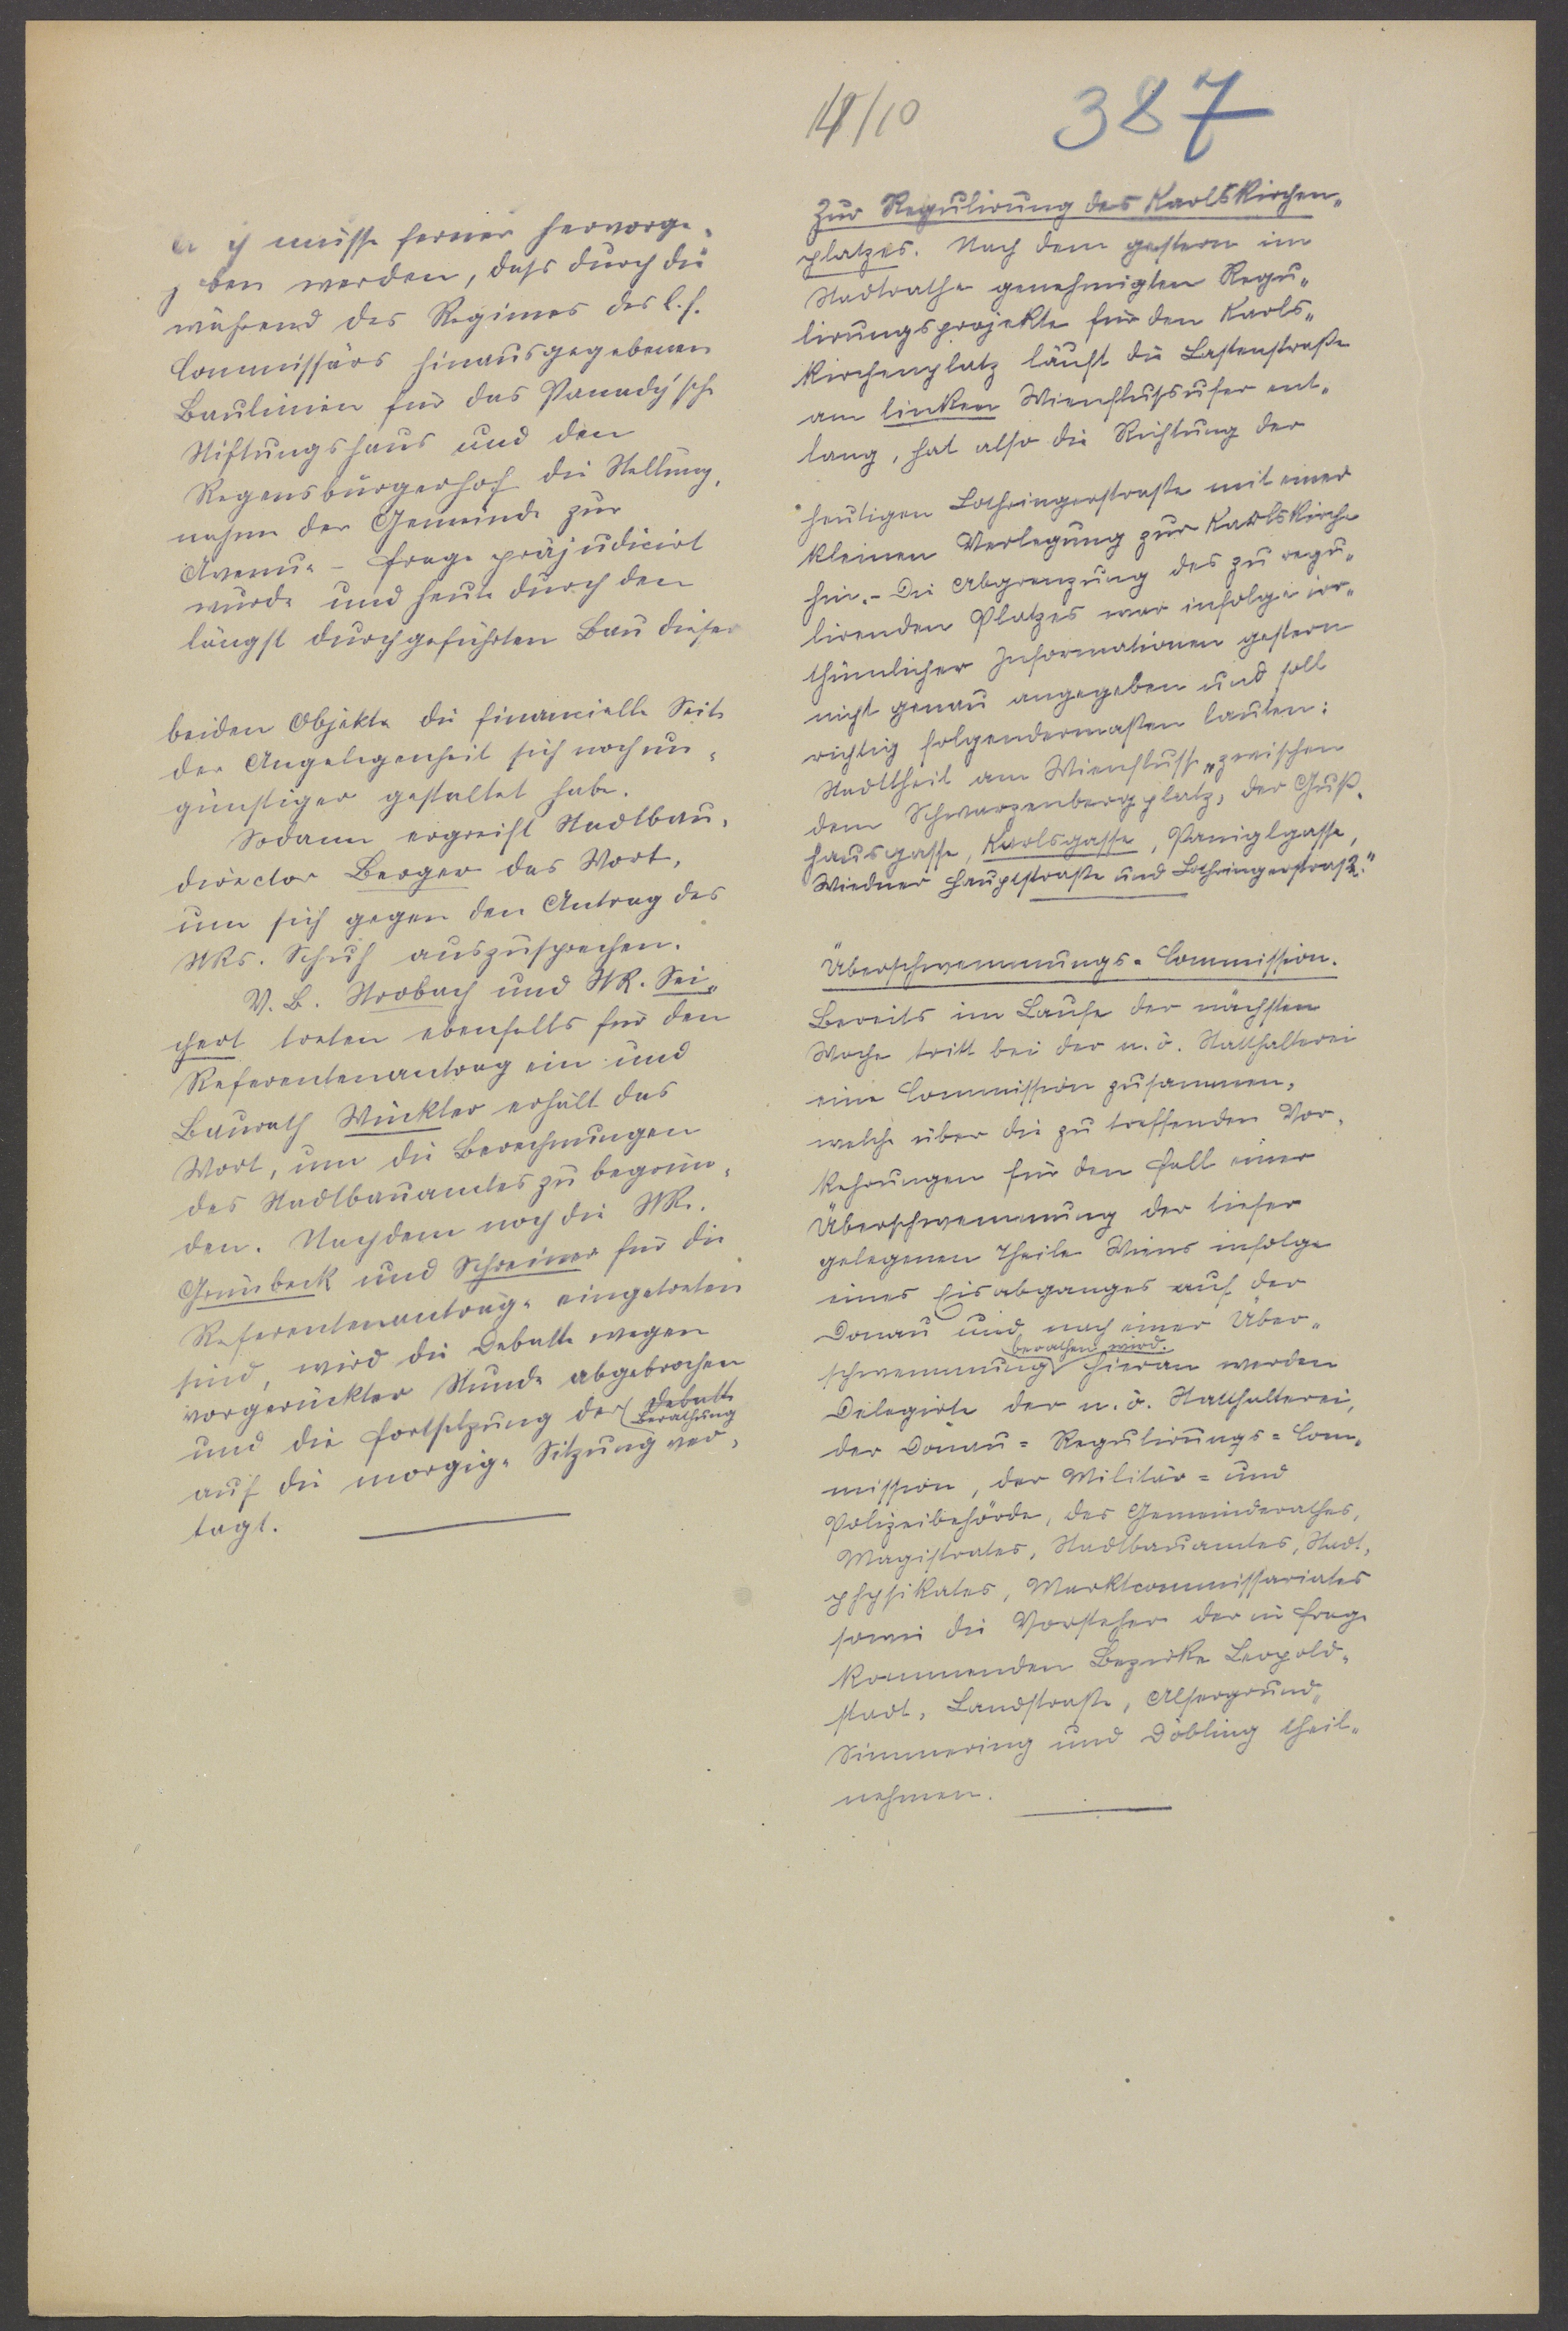 14/10
387
müsse ferner hervorge-
ben werden, dass durch die
während des Regimes des l. f.
Commissärs hinausgegebenen
Baulinien für das Vanady'sche
Stiftungshaus und den
Regensburgerhof die Stellung-
nahme der Gemeinde zur
Avenue-Frage präjudicirt
wurde und heute durch den
längst durchgeführten Bau dieser
beiden Objekte die financielle Seite
der Angelegenheit sich noch un-
günstiger gestaltet habe.
Sodann ergreift Stadtbau-
director Berger das Wort,
um sich gegen den Antrag des
StRs. Schuh auszusprechen.
V. B. Strobach und StR. Sei-
chert treten ebenfalls für den
Referentenantrag ein und
Baurath Winkler erhält das
Wort, um die Berechnungen
des Stadtbauamtes zu begrün-
den. Nachdem noch die StR.
Grünbeck und Schreiner für die
Referentenanträge eingetreten
sind, wird die Debatte wegen
vorgerückter Stunde abgebrochen
und die Fortsetzung der Debatte
Berathung
auf die morgige Sitzung ver-
tagt.
Zur Regulirung des Karlskirchen-
platzes. Nach dem gestern im
Stadtrathe genehmigten Regu-
lirungsprojekte für den Karls-
kirchenplatz läuft die Lastenstraße
am linken Wienflußufer ent-
lang, hat also die Richtung der
heutigen Lothringerstraße mit einer
kleinen Verlegung zur Karlskirche
hin. - Die Abgrenzung des zu regu-
lirenden Platzes war infolge irr-
thümlicher Informationen gestern
nicht genau angegeben und soll
richtig folgendermaßen lauten:
Stadttheil am Wienflusse „zwischen
dem Schwarzenbergplatz, der Guß-
hausgasse, Karlsgasse, Paniglgasse,
Wiedner Hauptstraße und Lothringerstraße."
Überschwemmungs-Commission.
Bereits im Laufe der nächsten
Woche tritt bei der n. ö. Statthalterei
eine Commission zusammen,
welche über die zu treffenden Vor-
kehrungen für den Fall einer
Überschwemmung der tiefer
gelegenen Theile Wiens infolge
eines Eisabganges auf der
Donau und nach einer Über-
berathend wird.
schwemmung hieran werden
Delegirte der n. ö. Statthalterei,
der Donau-Regulirungs-Com-
mission, der Militär- und
Polizeibehörde, des Gemeinderathes,
Magistrates, Stadtbauamtes, Stadt-
physikates, Marktcommissariates
sowie die Vorsteher der in Frage
kommenden Bezirke Leopold-
stadt, Landstraße, Alsergrund,
Simmering und Döbling theil-
nehmen.